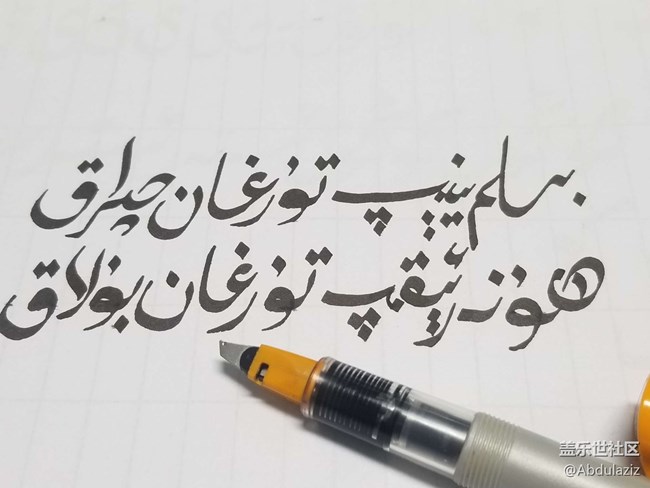 بىلىم يېنىپ تۇرغان چىراق
ھۈنەر ئېقىپ تۇرغان بۇلاق
盖乐世社区
@Abdulaziz